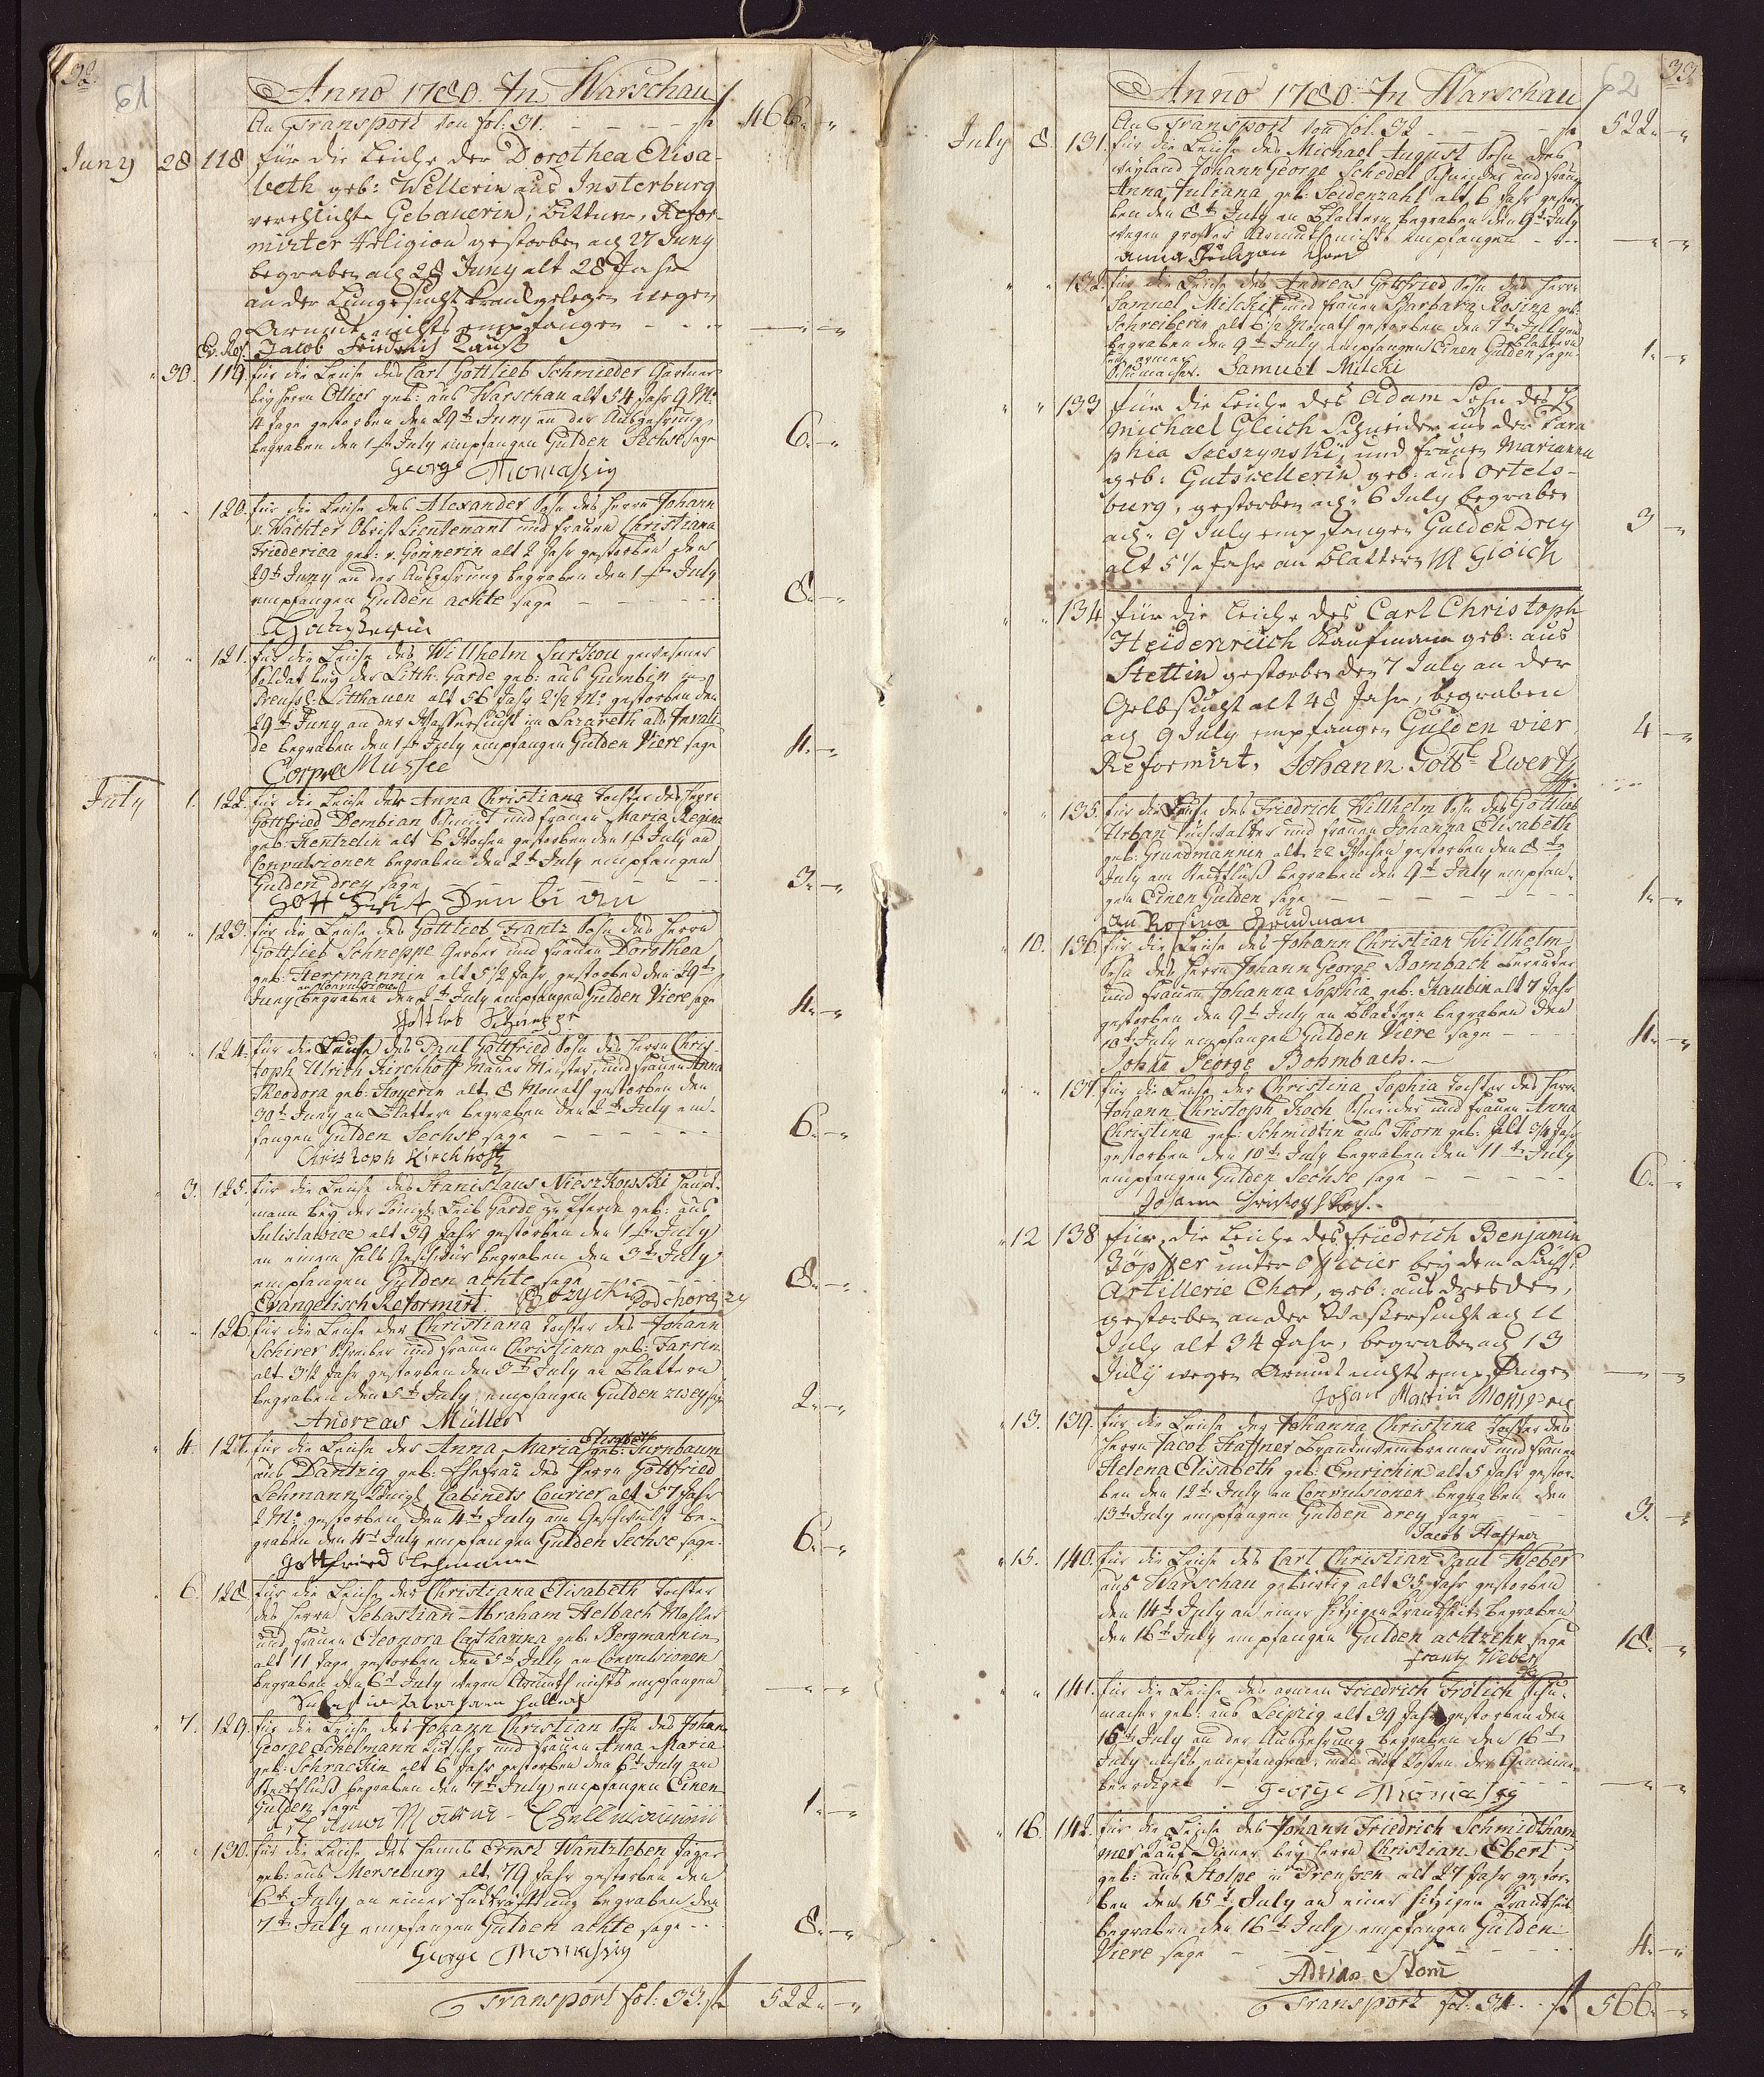 32.
61
Anno 1780. In Warschau
An Transport von fol. 31. — — — f 466.„—„
Juny 28 118 für die Leiche der Dorothea Elisa-
beth geb: Wellerin aus Insterburg
verehlichte Gebauerin, Refor-
mirter Religion gestorben d 27 Juny
begraben d 28 Juny alt 28 Jahr
an der Lungesucht krank gelegen wegen
Armut nichts empfangen — —„—„
Ev. Ref. Jacob Friedrich
„ 30. 119. für die Leiche des Carl Gottlieb Schmieder Gärtner
bey Herrn Ollier geb: aus Warschau alt 54 Jahr 9 Mo:
4 Tage gestorben den 29t Juny an der Auszehrung
begraben den 1st July empfangen Gulden Sechse sage 6.„—„
George Thomaszig
„ „ 120. für die Leiche des Alexander Sohn des Herrn Johann
v. Wachter Obrist Lieutenant und Frauen Christiana
Friederica geb: v. Gönnerin alt 2 Jahr gestorben den
29t Juny an der Auszehrung begraben den 1st July
empfangen Gulden achte sage — — — 8.„—„
„ „ 121. für die Leiche des Willhelm Surkou gewesener
Soldat bey der Litth: Garde geb: aus Gumbin in
Preuss: Litthauen alt 56 Jahr 2 1/2 Mo: gestorben den
29t Juny an der Wassersucht im Lazareth als Invali-
de begraben den 1st July empfangen Gulden Viere sage 4.„—„
Corpral Müssee
July 1. 122. für die Leiche der Anna Christiana Tochter des Herrn
Gottfried Dembian Schmidt und Frauen Maria Regina
geb: Kentzelin alt 6 Wochen gestorben den 1st July an
Convulsionen begraben den 2t July empfangen
Gulden drey sage 3.„—„
„ „ 123. für die Leiche des Gottlieb Frantz Sohn des Herrn
Gottlieb Schneppe Gerber und Frauen Dorothea
geb: Herrmannin alt 5 1/2 Jahr gestorben den 29t
an Convulsionen
Juny begraben den 2t July empfangen Gulden Viere sage 4.„—„
Gottlieb Schneppe
„ „ 124. für die Leiche des Paul Gottfried Sohn des Herrn Chris-
toph Ulrich Kirchhoff Mauer Meister, und Frauen Anna
Theodora geb: Hoyerin alt 8 Monath gestorben den
30t Juny an Blattern begraben den 2t July em-
fangen Gulden Sechse sage — — — 6.„—„
Christoph Kirchhoff
„ 3. 125. für die Leiche des Stanislaus Nieszkowski Haupt-
mann bey der Königl: Leib Garde zu Pferde geb: aus
Sulislawice alt 39 Jahr gestorben den 1st July
an einem Hals Geschwür begraben den 3t July
empfangen Gulden achte sage 8.„—„
Evangelisch Reformirt. Podchorąży
„ „ 126. für die Leiche der Christiana Tochter des Johann
Schirer Schreiber und Frauen Christiana geb: Farrin
alt 3 1/2 Jahr gestorben den 3t July an Blattern
begraben den 5t July, empfangen Gulden zwey sage 2.„—„
Andreas Müller
Elisabeth
„ 4. 127. für die Leiche der Anna Maria geb: Turnbaum
aus Dantzig geb: Ehefrau des Herrn Gottfried
Lehmann Königl: Cabinets Courier alt 57 Jahr
2 Mo: gestorben den 4t July am Geschwulst be-
graben den 4t July empfangen Gulden Sechse sage. 6.„—„
Gottfried Lehmann
„ 6. 128. für die Leiche der Christiana Elisabeth Tochter
des Herrn Sebastian Abraham Helbach Mahler
und Frauen Eleonora Catharina geb: Bergmannin
alt 11 Tage gestorben den 5t July an Convulsionen
begraben den 6t July wegen Armuth nichts empfangen —„—„
„ 7. 129. für die Leiche des Johann Christian Sohn des Johan
George Eckelmann Kutscher und Frauen Anna Maria
geb: Schrackin alt 6 Jahr gestorben den 6t July am
Steckfluß begraben den 7t July empfangen Einen
Gulden sage 1.„—„
„ „ 130. für die Leiche des Hanns Ernst Wantzleben Jäger
geb: aus Merseburg alt 79 Jahr gestorben den
6t July an einer Entkräfftung begraben den
7t July empfangen Gulden achte sage - - 8.„—„
George Thomaszig
Transport fol: 33. f 522.„—„
33.
62
Anno 1780. In Warschau
An Transport von fol. 32 — — — f 522.„—„
July 8. 131. für die Leiche des Michael August Sohn des
weyland Johann George Schedel Schneider und Frauen
Anna Juliana geb: Seidenzahl alt 6 Jahr gestor-
ben den 8t July an Blattern begraben den 9t July
wegen großer Armuth nichts empfangen - - —„—„
„ „ 132. für die Leiche des Andreas Gottfried Sohn des Herrn
Samuel Milchii und Frauen Barbara Rosina geb:
Schreiberin alt 6 1/2 Monath gestorben den 7t July an
Blattern
begraben den 9t July empfangen Einen Gulden sage. 1.„—„
ein armer
Schumacher. Samuel Milcki
„ „ 133 für die Leiche des Adam Sohn des H
Michael Gleich Schneider aus der Para
phia Szeszynski, und Frauen Marianna
geb: Gutswellerin geb: aus Ortels-
burg, gestorben d: 6 July begraben
d: 9 July empfangen Gulden Drey 3 —„
alt 5 1/2 Jahr an Blattern M Gleich
„ „ 134 für die Leiche des Carl Christoph
Heidenreich Kaufmann geb: aus
Stettin gestorben den 7 July an der
Gelbsucht alt 48 Jahr, begraben
d 9 July empfangen Gulden vier 4 —„
Reformirt. Johann Gottl Ewert
„ „ 135. für die Leiche des Friedrich Willhelm Sohn des Gottlieb
Urban Tuchwalker und Frauen Johanna Elisabeth
geb: Grundmannin alt 22 Wochen gestorben den 8t
July am Steckfluß begraben den 9t July empfan-
gen Einen Gulden sage — — — 1.„—„
An Rosina Grundman
„ 10. 136. für die Leiche des Johann Christian Willhelm
Sohn des Herrn Johann George Bombach
und Frauen Johanna Sophia geb: Raubin alt 7 Jahr
gestorben den 9t July an Blattern begraben den
10t July empfangen Gulden Viere sage — — 4.„—„
Johan George Bohmbach.
„ „ 137. für die Leiche der Christina Sophia Tochter des Herrn
Johann Christoph Koch Schneider und Frauen Anna
Christina geb: Schmidtin aus Thorn geb: alt 3/4 Jahr
gestorben den 10t July begraben den 11t July
empfangen Gulden Sechse sage — — — 6.„—„
Johann Christoph Koch.
„ 12 138 für die Leiche des Friedrich Benjamin
Töpffer unter Officier bey dem Sächs:
Artillerie Chor, geb: aus Dresden,
gestorben an der Wassersucht d 11
July alt 34 Jahr, begraben d 13
July wegen Armut nichts empfangen —„—„
Johan Martin
„ 13. 139. für die Leiche der Johanna Christina Tochter des
Herrn Jacob Haffner Brandtweinbrenner und Frauen
Helena Elisabeth geb: Emrichin alt 5 Jahr gestor-
ben den 12t July an Convulsionen begraben den
13t July empfangen Gulden drey sage — — 3.„—„
Jacob Haffner
„ 15. 140. für die Leiche des Carl Christian Paul Weber
aus Warschau gebürtig alt 35 Jahr gestorben
den 14t July an einer hitzigen Krankheit begraben
den 16t July empfangen Gulden achtzehn sage 18.„—„
Frantz Weber
„ „ 141. für die Leiche des armen Friedrich Frölich Schu-
macher geb: aus Leipzig alt 39 Jahr gestorben den
15t July an der Auszehrung begraben den 16t
July nichts empfangen und auf Kosten der Gemeine
beerdiget — —„—„
George Thomaszig
„ 16. 142. für die Leiche des Johann Friedrich Schmidtham
mer Kauf Diener bey Herrn Christian Ebert
geb: aus Stolpe in Preussen alt 27 Jahr gestor-
ben den 15t July an einer hitzigen Krankheit
begraben den 16t July empfangen Gulden
Viere sage — — — 4.„—„
Adrian Stom
Transport fol: 34. . f 566.„—„